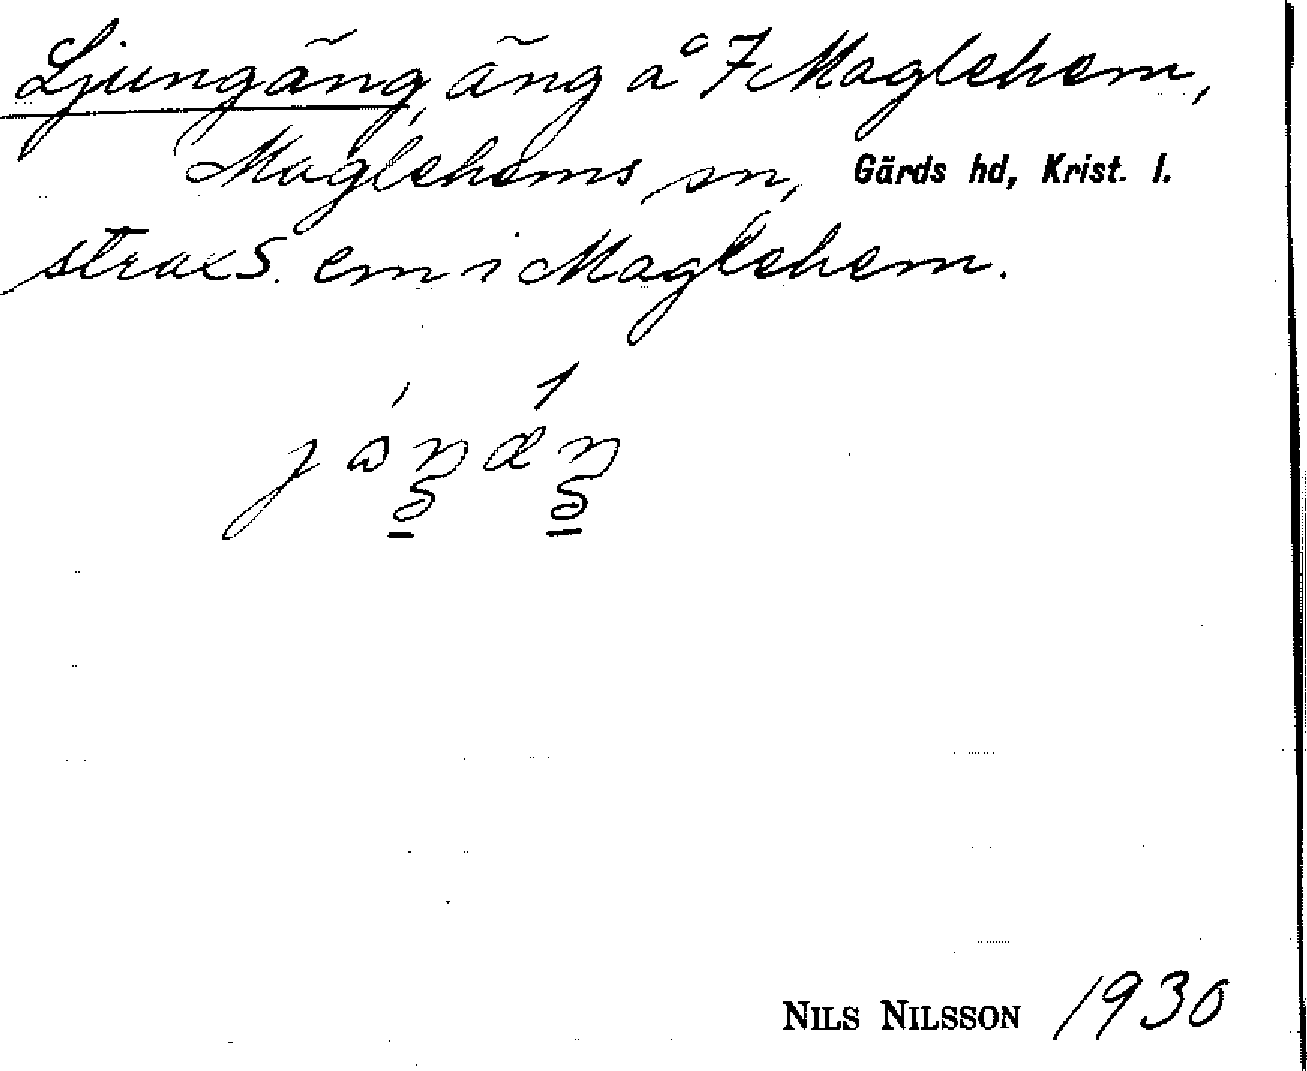 Ljungäng, äng å 7 Maglehem,
Maglehems sn, Gärds hd, Krist. l.
strax S. om i Maglehem.
NILS NILSSON 1930